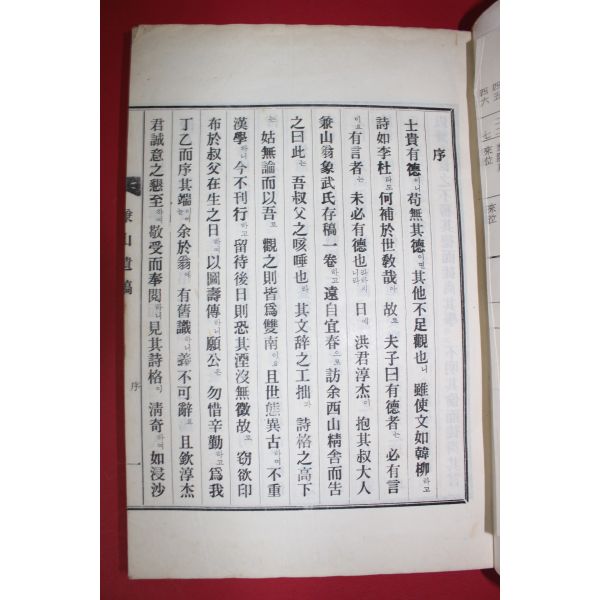 序
士貴有德이니苟無其德이면其他不足觀也니雖使文如韓柳하고
詩如李杜라도何補於世敎哉아故로夫子曰有德者는必有言
이요有言者는未必有德也니라하시니日에洪君淳杰이抱其叔大人
兼山翁象武氏存稿一卷하고遠自宜春으로訪余西山精舍而告
之曰此는吾叔父之咳唾也라其文辭之工拙과詩格之高下
는姑無論而以吾로觀之則皆爲雙南이요且世態異古하여不重
漢學하니今不刊行하고留待後日則恐其湮沒無徵故로窃欲印
布於叔父在生之日하여以圖壽傳하니願公은勿惜辛勤하고爲我
丁乙而序其端이어다余於翁에有舊識하니義不可辭요且欽淳杰
君誠意之懇至하여敬受而奉閱하니見其詩格이淸奇하여如浸沙
兼山遺稿
序
一
四五
四六
七
來位
來位